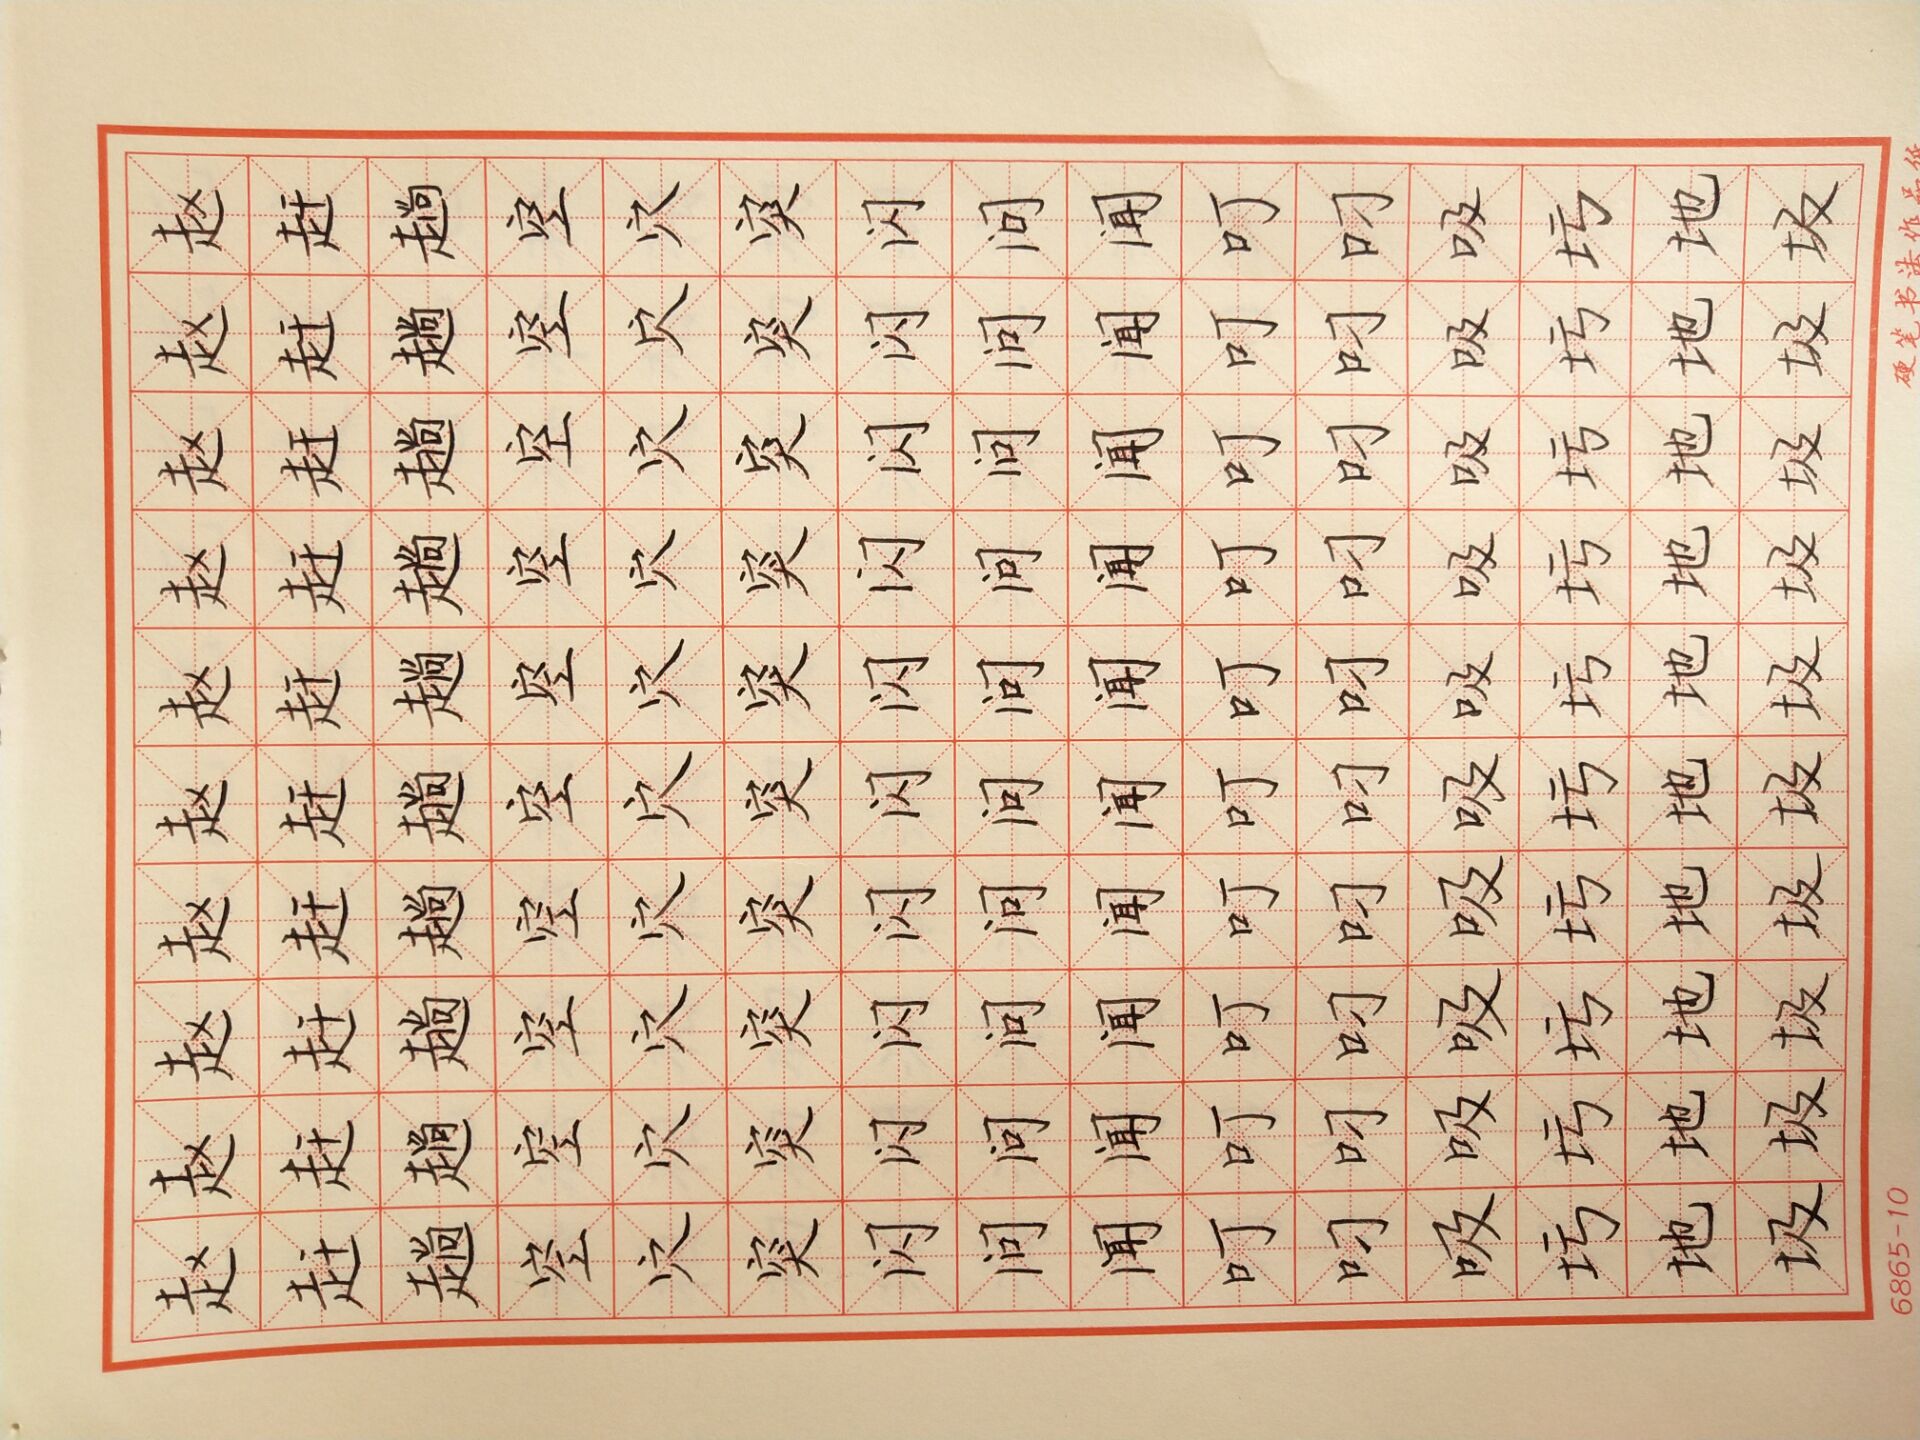 赵赵赵赵赵赵赵赵赵赵
赶赶赶赶赶赶赶赶赶赶
趟趟趟趟趟趟趟趟趟趟
空空空空空空空空空空
穴穴穴穴穴穴穴穴穴穴
突突突突突突突突突突
闪闪闪闪闪闪闪闪闪闪
问问问问问问问问问问
闻闻闻闻闻闻闻闻闻闻
叮叮叮叮叮叮叮叮叮叮
叼叼叼叼叼叼叼叼叼叼
吸吸吸吸吸吸吸吸吸吸
圬圬圬圬圬圬圬圬圬圬
地地地地地地地地地地
圾圾圾圾圾圾圾圾圾圾
6865-10 硬笔书法作品纸